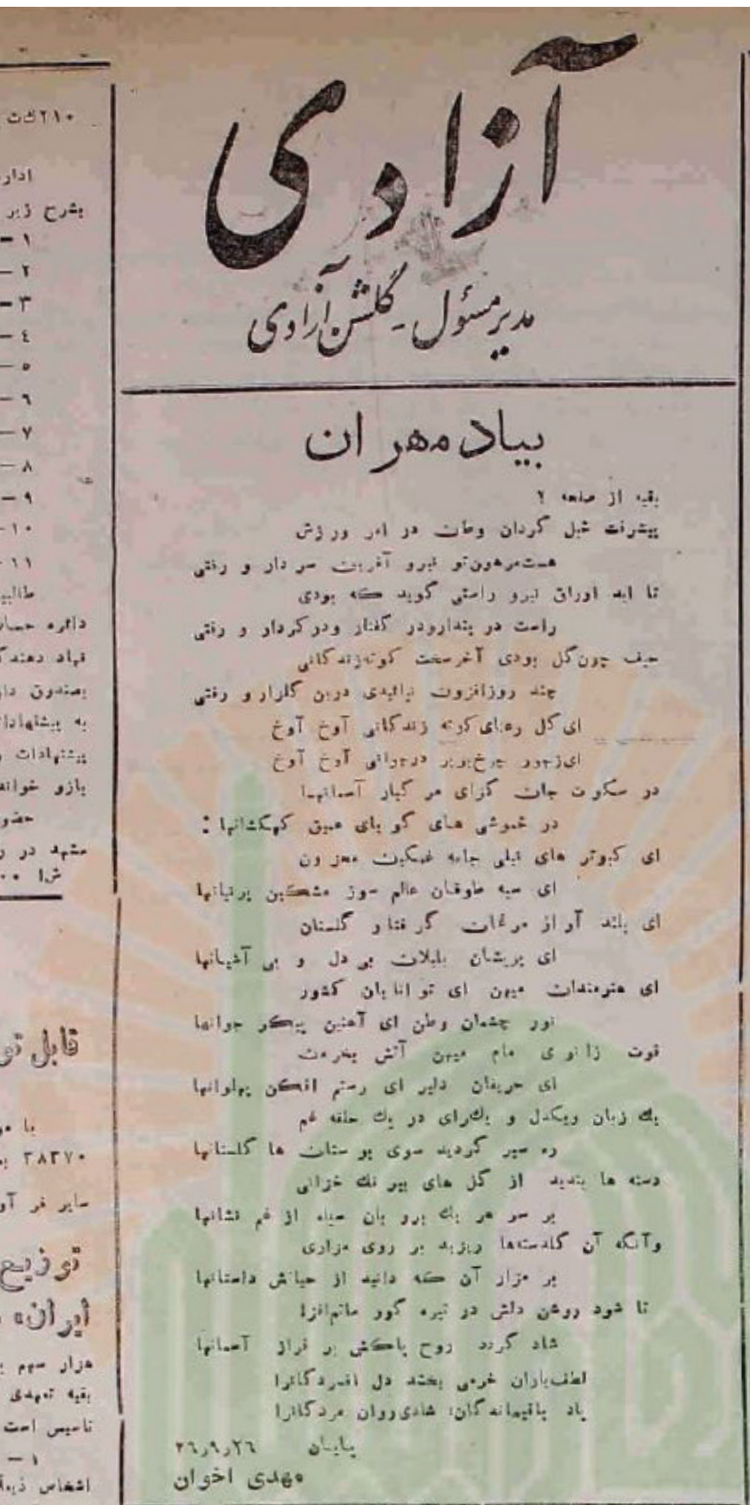 آزادی
مدیر مسئول ـ گلشن آزادی
بیاد مهران
بقیه از صفحه ۲
پیشرفت شبل گردان وطن در امر ورزش
هست مرهون تو نیرو آفرین سردار و رفتی
تا ابد اوراق نیرو راستی گوید که بودی
راست در پندار و در گفتار و در کردار و رفتی
حیف چون گل بودی آخر سخت کوته زندگانی
چند روز افزون نپائیدی درین گلزار و رفتی
ای گل رعنای کوته زندگانی آوخ آوخ
ای ز جور چرخ پیر در جوانی آوخ آوخ
در سکوت جان گزای مرگبار آسمانها
در خموشی های گویای عمیق کهکشانها :
ای کبوتر های نیلی جامه غمگین محزون
ای سیه طوقان عالم سوز مشکین پرنیانها
ای بلند آواز مرغان گرفتار گلستان
ای پریشان بلبلان بی دل و بی آشیانها
ای هنرمندان میهن ای توانایان کشور
نور چشمان وطن ای آهنین پیکر جوانها
قوت زانوی مام میهن آتش بخرمن
ای حریفان دلیر ای رستم افکن پهلوانها
یك زبان و یکدل و یك رای در یك حلقه غم
ره سپر گردید سوی بوستان ها گلستانها
دسته ها بندید از گل های بیرنك خزانی
بر سر هر یك برو بان سیاه از غم نشانها
وآنگه آن گلدسته ها ریزید بر روی مزاری
بر مزار آن که دانید از حیاتش داستانها
تا شود روشن دلش در تیره گور ماتم افزا
شاد گردد روح پاکش بر فراز آسمانها
لطف یاران خرمی بخشد دل افسردگانرا
یاد باقیماندگان، شادی روان مردگانرا
پایان ۲۶٫۹٫۲۶
مهدی اخوان
۲۱۰
بشرح زیر
۱ –
۲ –
۳ –
۴ –
۵ –
۶ –
۷ –
۸ –
۹ –
۱۰ –
۱۱ –
دائره
بصندوق
به
مشهد در
قابل
با
۳۸۳۷۰
سایر
توزیع
ایران»
هزار سهم
بقیه تعهدی
تاسیس است
۱ –
اشخاص